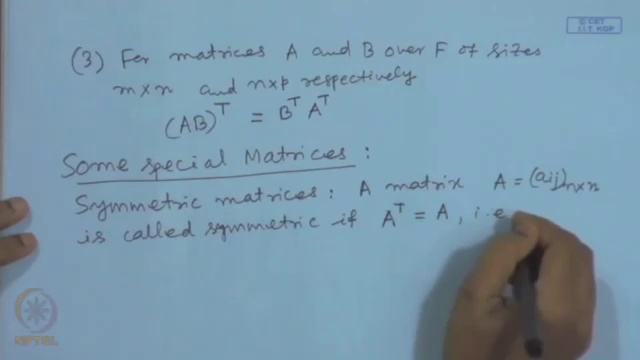 © CET
I.I.T. KGP
(3) For matrices A and B over F of sizes
m×n and n×p respectively
(AB)ᵀ = Bᵀ Aᵀ
Some special Matrices :
Symmetric matrices : A matrix A = (aij)n×n
is called symmetric if Aᵀ = A, i.e
NPTEL